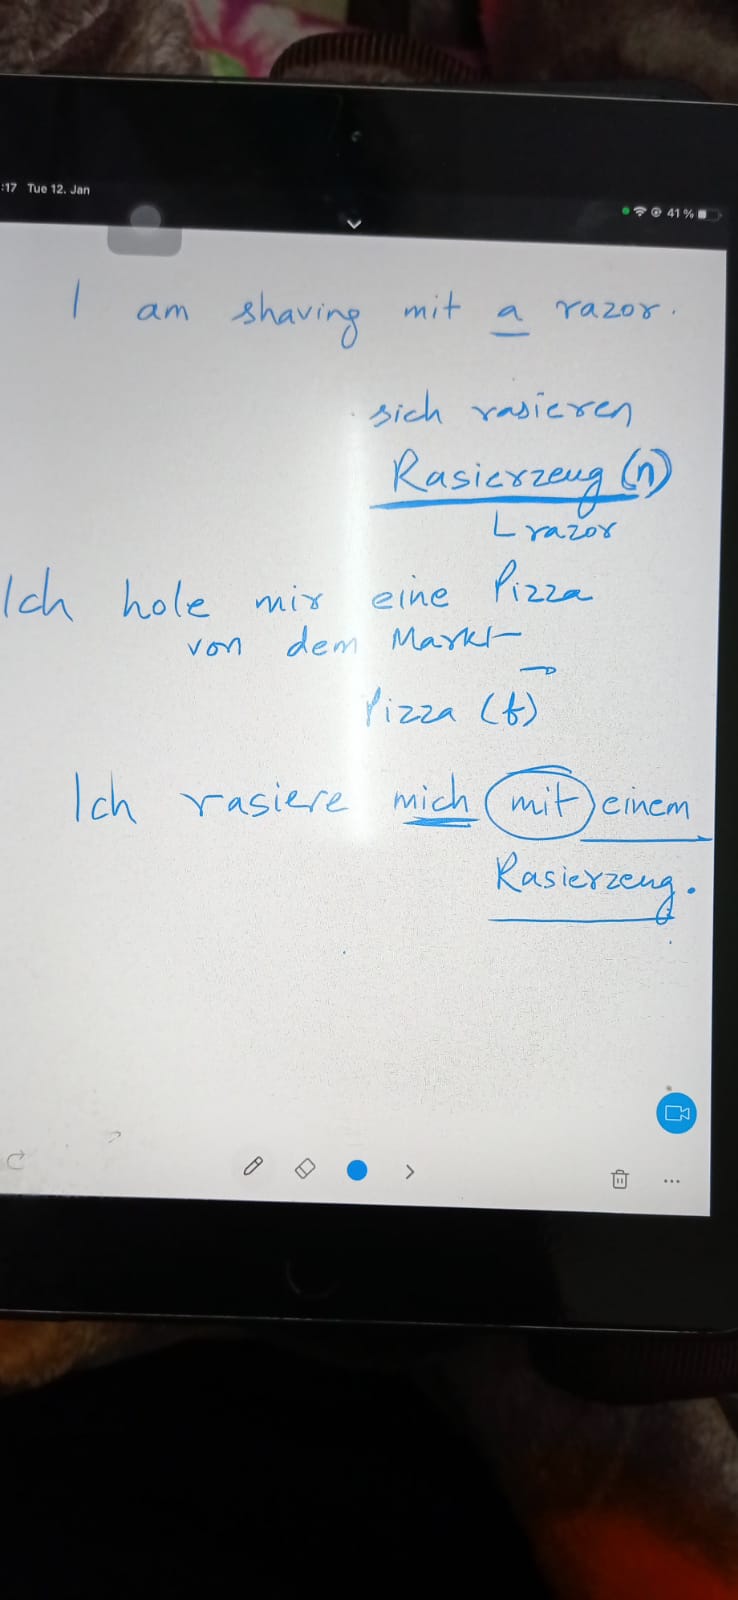 :17 Tue 12. Jan
41%
I am shaving mit a razor.
sich rasieren
Rasierzeug (n)
razor
Ich hole mir eine Pizza
von dem Markt
Pizza (f)
Ich rasiere mich mit einem
Rasierzeug.